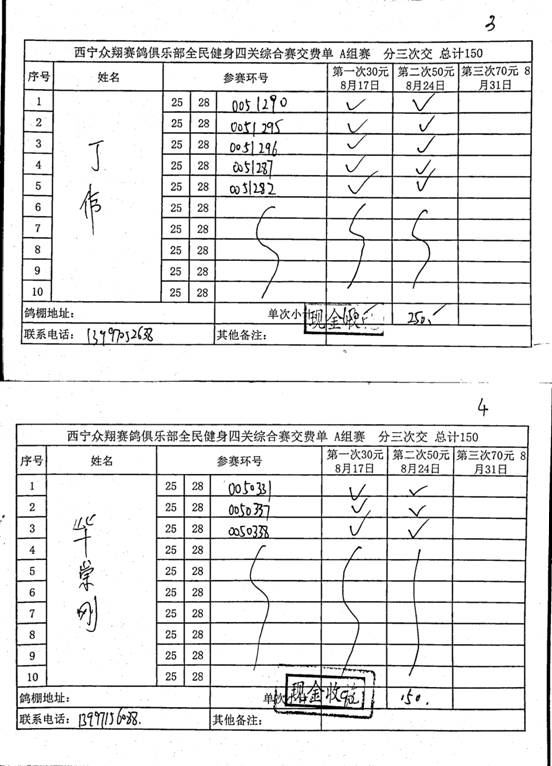 3
西宁众翔赛鸽俱乐部全民健身四关综合赛交费单 A组赛 分三次交 总计150
序号 姓名 参赛环号 第一次30元 8月17日 第二次50元 8月24日 第三次70元 8月31日
1 25 28 0051290 ✓ ✓
2 25 28 0051295 ✓ ✓
3 25 28 0051296 ✓ ✓
4 25 28 0051287 ✓ ✓
5 25 28 0051282 ✓ ✓
6 25 28
7 25 28
8 25 28
9 25 28
10 25 28
丁伟
鸽棚地址: 单次小 现金收 150 250.
联系电话: 13497052688 其他备注:
4
西宁众翔赛鸽俱乐部全民健身四关综合赛交费单 A组赛 分三次交 总计150
序号 姓名 参赛环号 第一次30元 8月17日 第二次50元 8月24日 第三次70元 8月31日
1 25 28 0050331 ✓ ✓
2 25 28 0050337 ✓ ✓
3 25 28 0050338 ✓ ✓
4 25 28
5 25 28
6 25 28
7 25 28
8 25 28
9 25 28
10 25 28
华崇刚
鸽棚地址: 单 现金收讫 150.
联系电话: 13997136088. 其他备注: